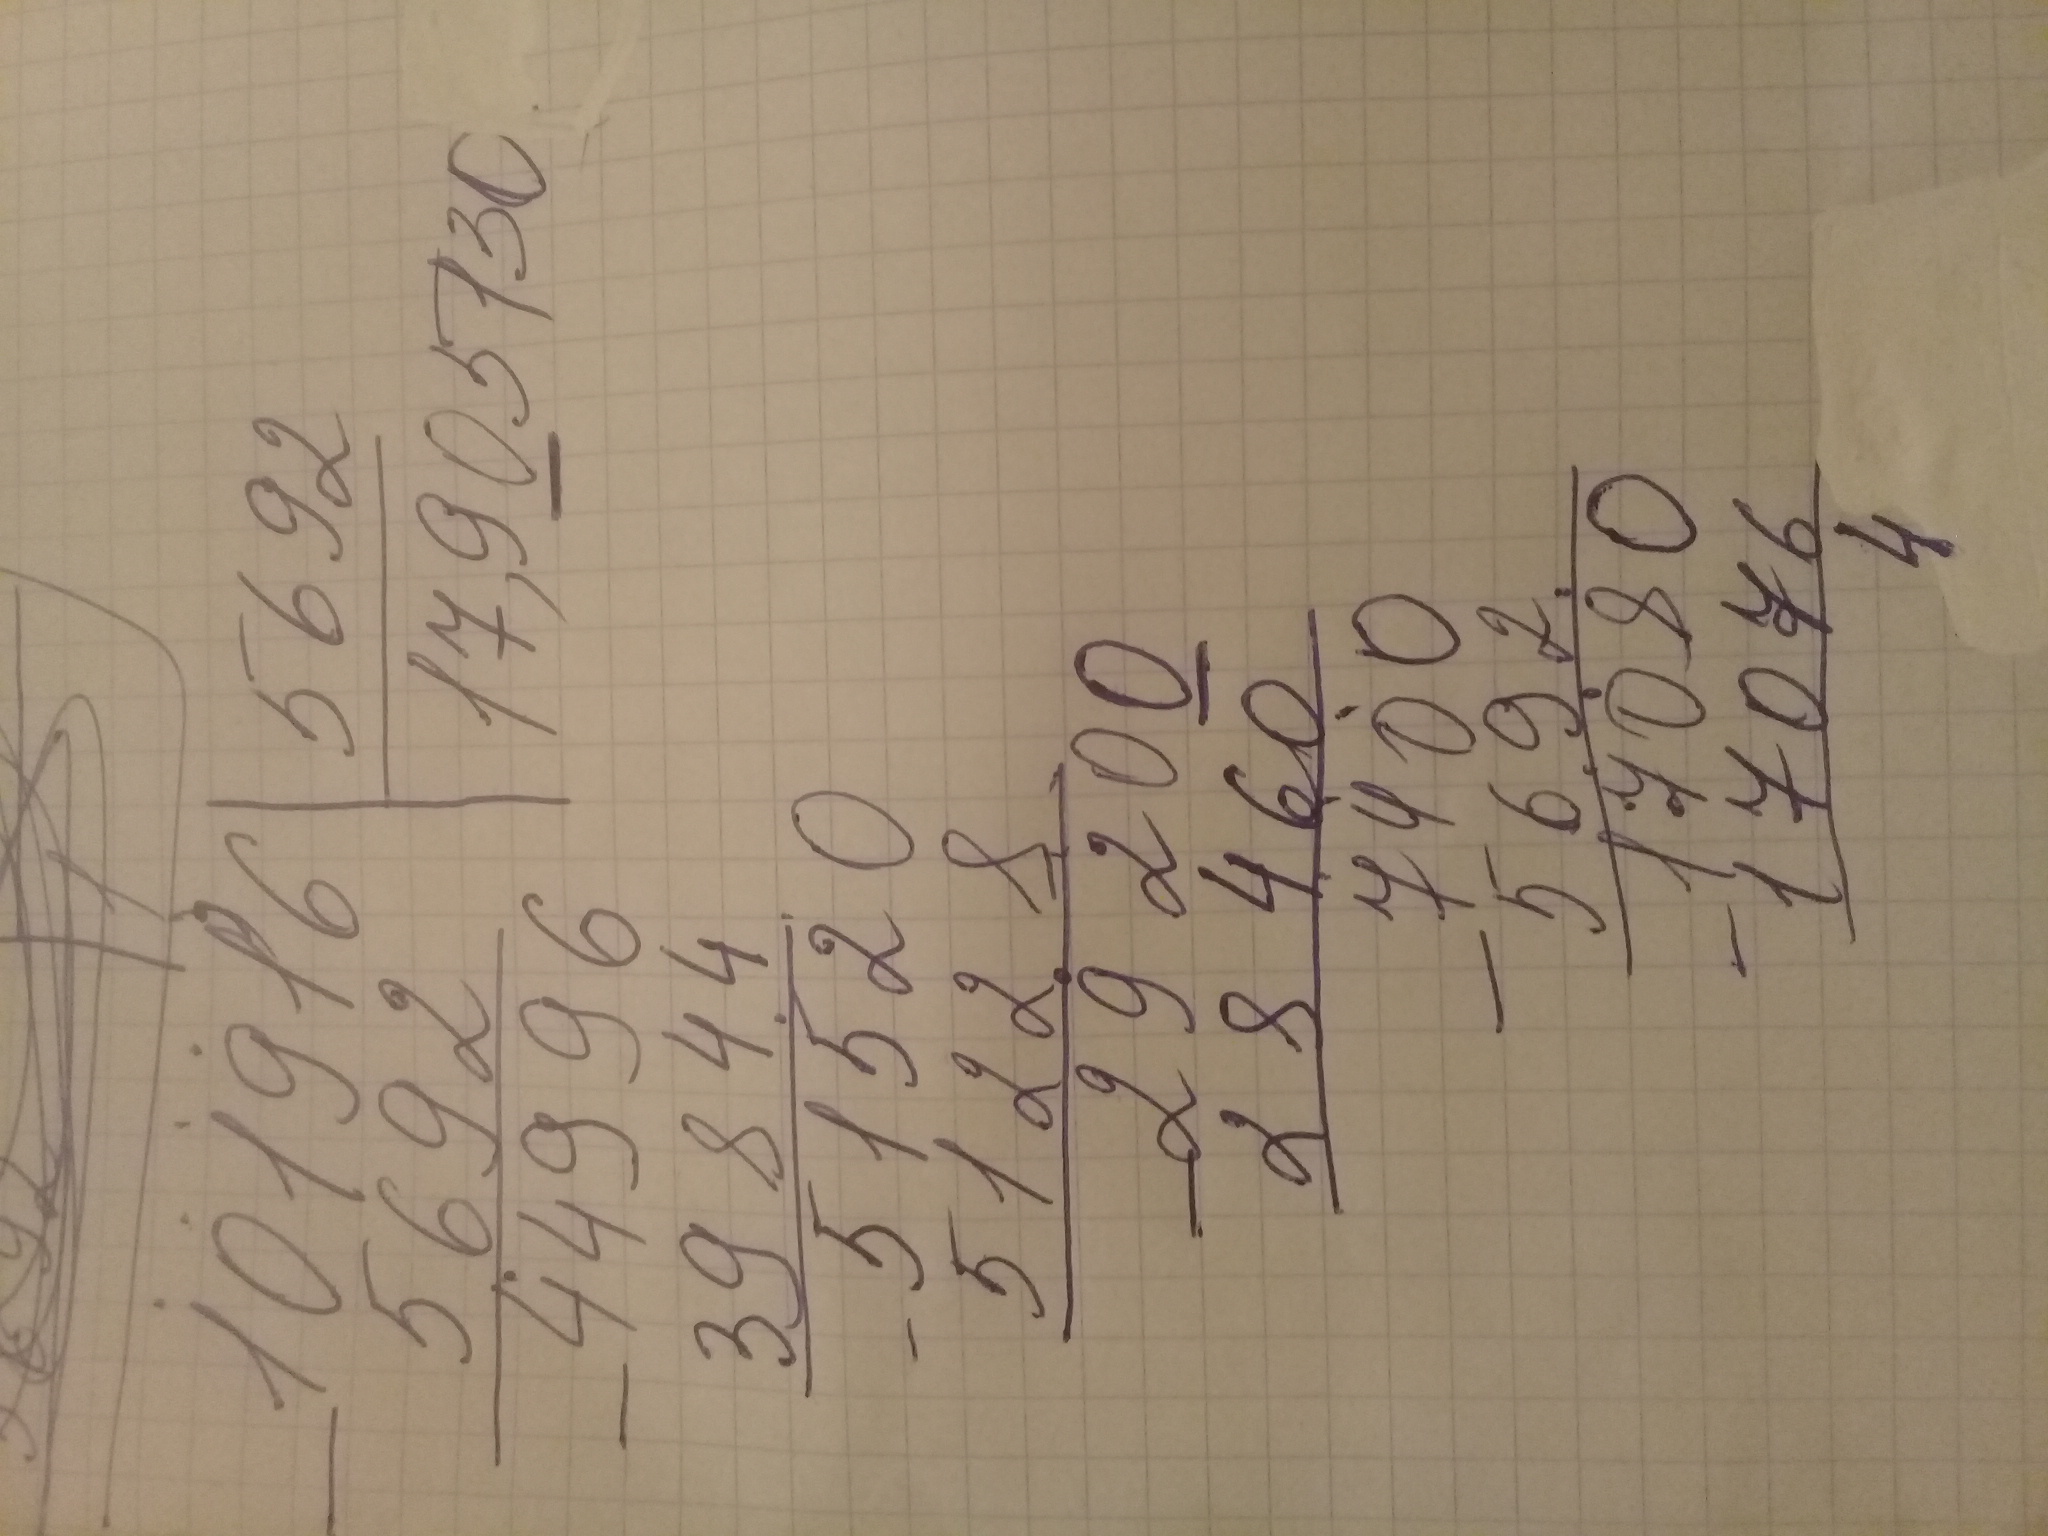 101916 | 5692
5692 | 17,905130
- 44996
39844
- 51520
51228
- 29200
28460
7400
- 5692
17080
- 17076
4